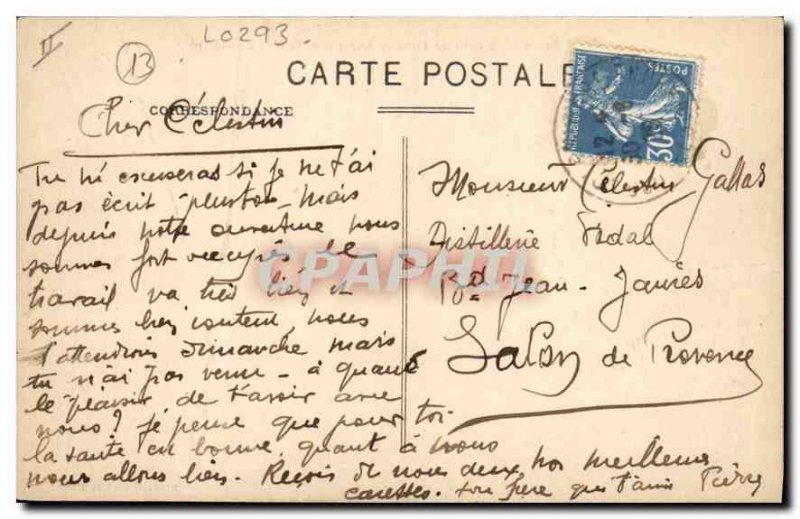 L0293.
II
13
CARTE POSTALE
CORRESPONDANCE
Cher Célestin
Tu m'escuseras si je ne t'ai
pas écrit plustot mais
depuis notre ouverture nous
sommes fort occupés le
travail va très bien et
sommes bien content nous
t'attendions dimanche mais
tu n'ai pas venu - à quand
le plaisir de t'avoir avec
nous? je pense que pour toi
la santé en bonne, quant à nous
nous allons bien. Reçois de nous deux, nos meilleures
caresses. ton père qui t'aime
Monsieur Célestin Gallas
Distillerie Vidal
Bd Jean-Jaurès
Salon de Provence
POSTES
REPUBLIQUE FRANÇAISE
30c
CPAPHIL